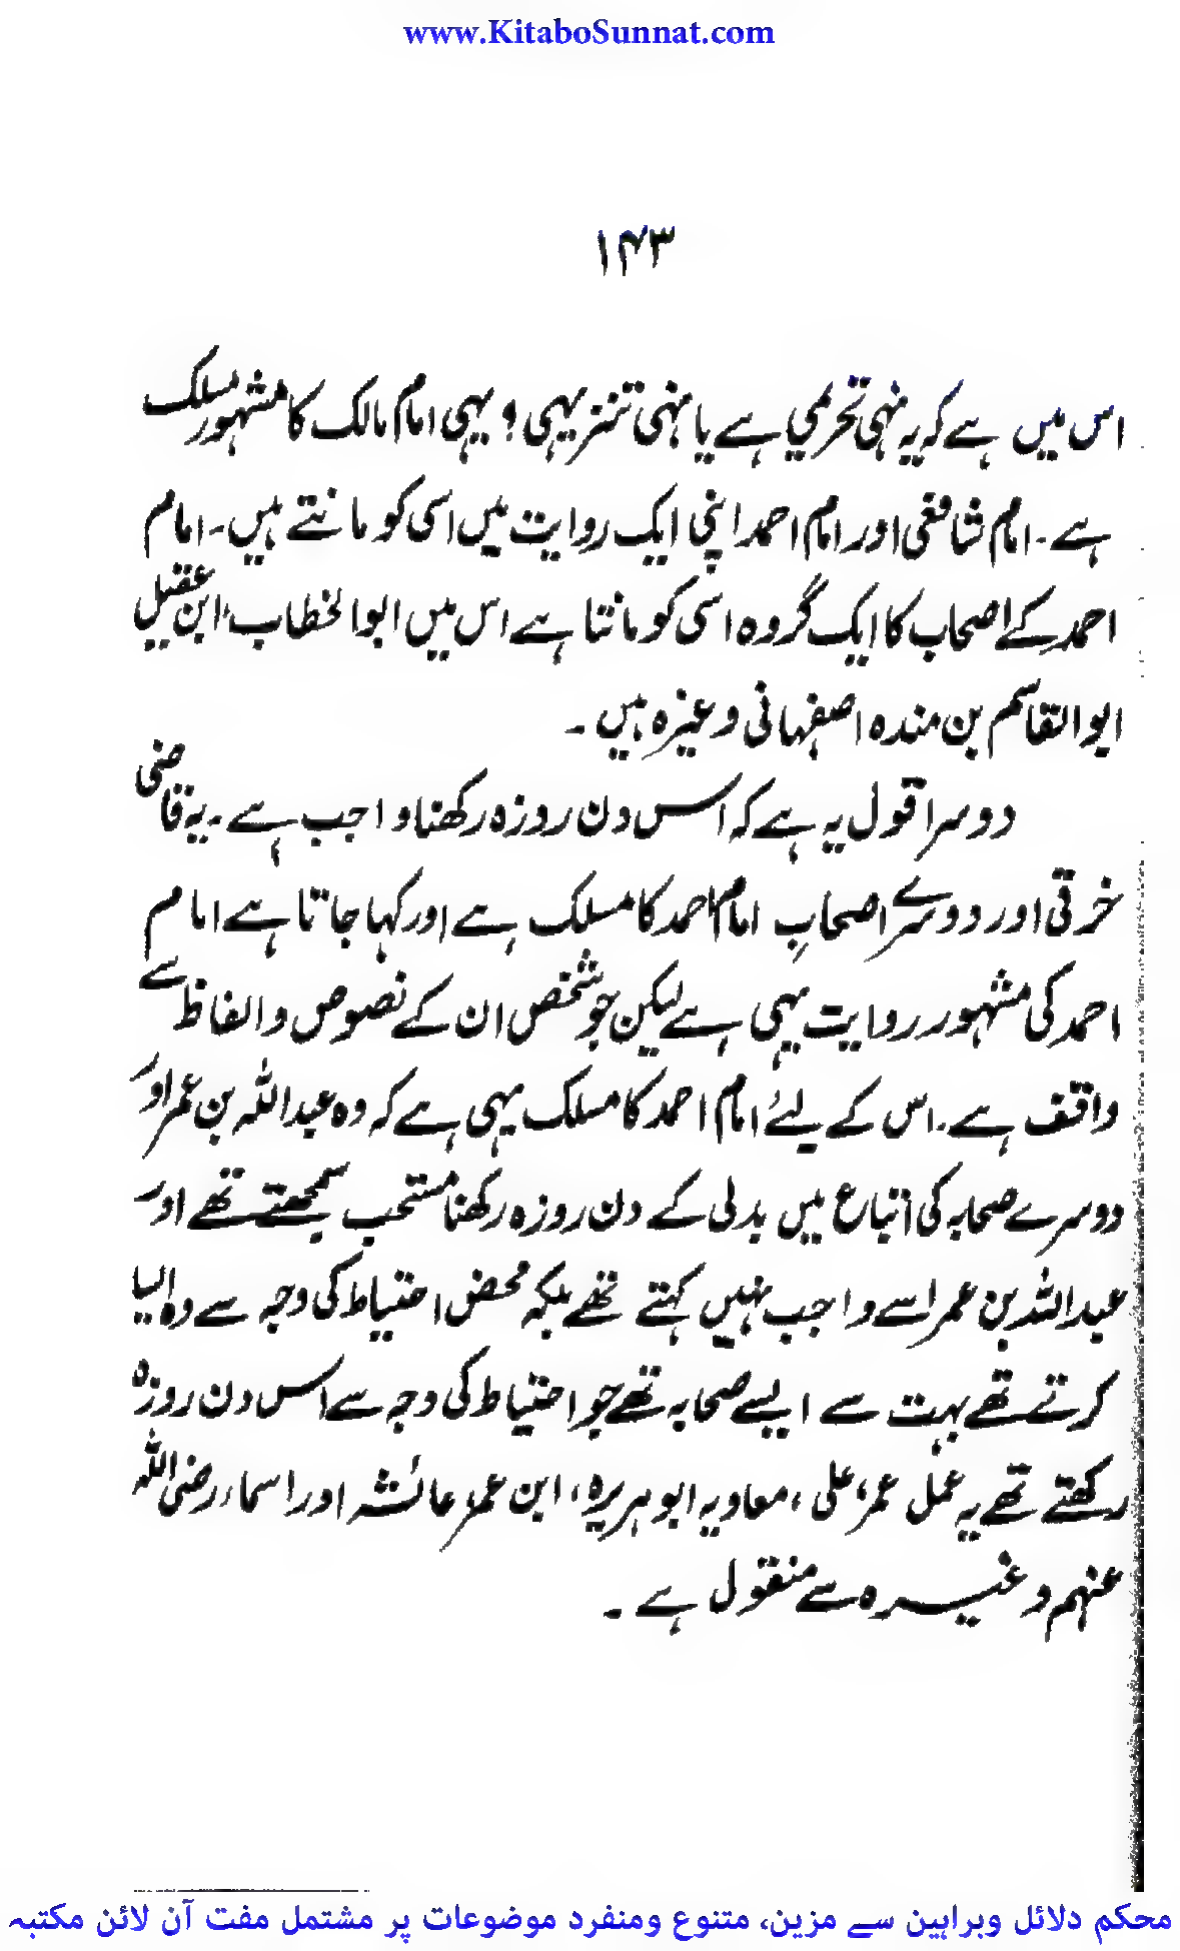 www.KitaboSunnat.com
۱۴۳
اس میں ہے کہ یہ نہی تحریمی ہے یا نہی تنزیہی؟ یہی امام مالک کا مشہور مسلک
ہے۔ امام شافعی اور امام احمد اپنی ایک روایت میں اسی کو مانتے ہیں۔ امام
احمد کے اصحاب کا ایک گروہ اسی کو مانتا ہے اس میں ابوالخطاب، ابن عقیل
ابوالقاسم بن مندہ اصفہانی وغیرہ ہیں۔
دوسرا قول یہ ہے کہ اس دن روزہ رکھنا واجب ہے۔ یہ قاضی
خرقی اور دوسرے اصحابِ امام احمد کا مسلک ہے اور کہا جاتا ہے امام
احمد کی مشہور روایت یہی ہے لیکن جو شخص ان کے نصوص والفاظ سے
واقف ہے۔ اس کے لئے امام احمد کا مسلک یہی ہے کہ وہ عبداللہ بن عمر اور
دوسرے صحابہ کی اتباع میں بدلی کے دن روزہ رکھنا مستحب سمجھتے تھے اور
عبداللہ بن عمر اسے واجب نہیں کہتے تھے بلکہ محض احتیاط کی وجہ سے وہ ایسا
کرتے تھے بہت سے ایسے صحابہ تھے جو احتیاط کی وجہ سے اس دن روزہ
رکھتے تھے یہ عمل عمر، علی، معاویہ ابوہریرہ، ابن عمر، عائشہ اور اسماء رضی اللہ
عنہم وغیرہ سے منقول ہے۔
محکم دلائل وبراہین سے مزین، متنوع ومنفرد موضوعات پر مشتمل مفت آن لائن مکتبہ